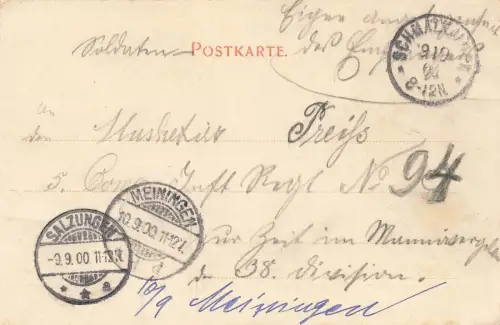 Eigene Angelegenheit
des Empfängers
Soldaten
POSTKARTE.
SCHMALKALDEN
9 9 00
8-12N.
An
den Musketier Preiß
5. Comp Inft Regt No 94
MEININGEN
10.9.00.11-12V.
SALZUNGEN
-9.9.00 11-12N.
* * a
zur Zeit im Manöver
d. 38. Division.
10/9 Meiningen